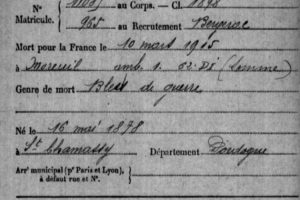 N° au Corps. — Cl. 1898
Matricule. 965 au Recrutement Bergerac
Mort pour la France le 10 mars 1915
à Moreuil amb. 1. (Somme)
Genre de mort Bless de guerre
Né le 16 mai 1878
à St Chamassy Département Dordogne
Arrt municipal (pr Paris et Lyon),
à défaut rue et N°.